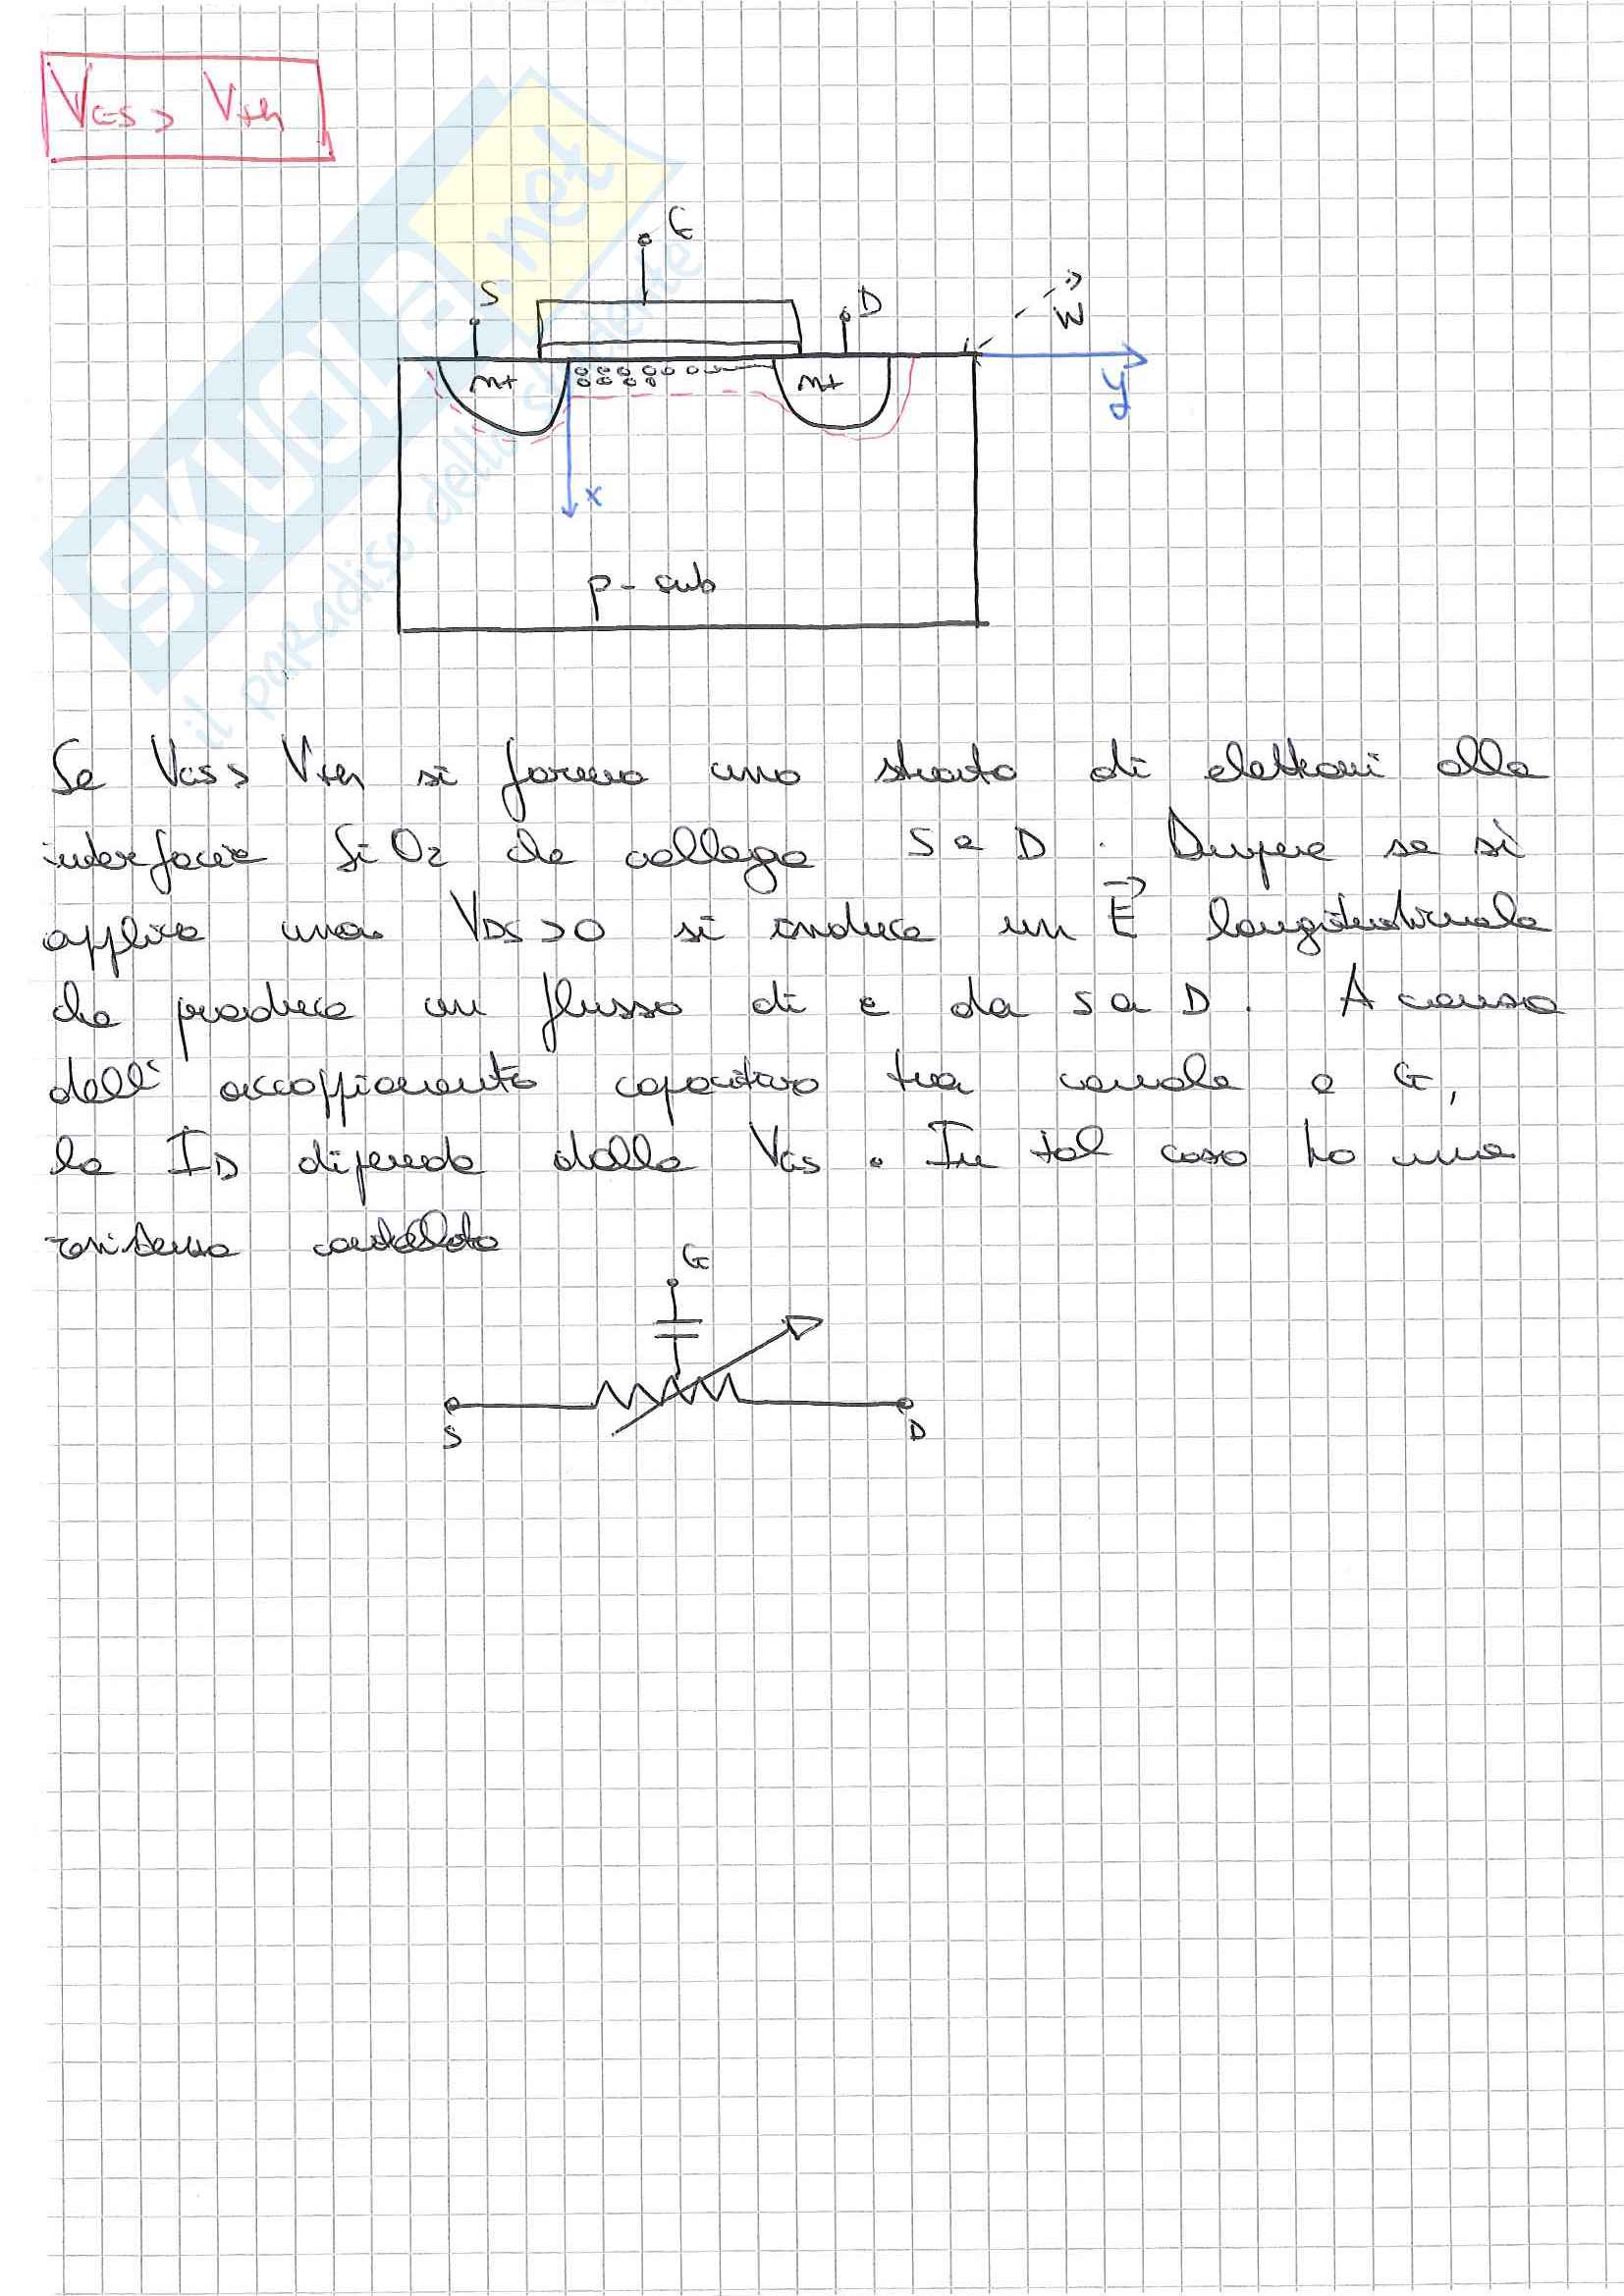 VGS > Vth
G
S
D
W
n+
n+
y
x
p-sub
Se VGS > Vth si forma uno strato di elettroni alla
interfaccia SiO2 che collega S a D. Dunque se si
applica una VDS > 0 si induce un E longitudinale
che produce un flusso di e da S a D. A causa
dell' accoppiamento capacitivo tra canale e G,
la ID dipende dalla VGS. In tal caso ho una
resistenza controllata
G
S
D
SKUOLA.net
il paradiso dello studente